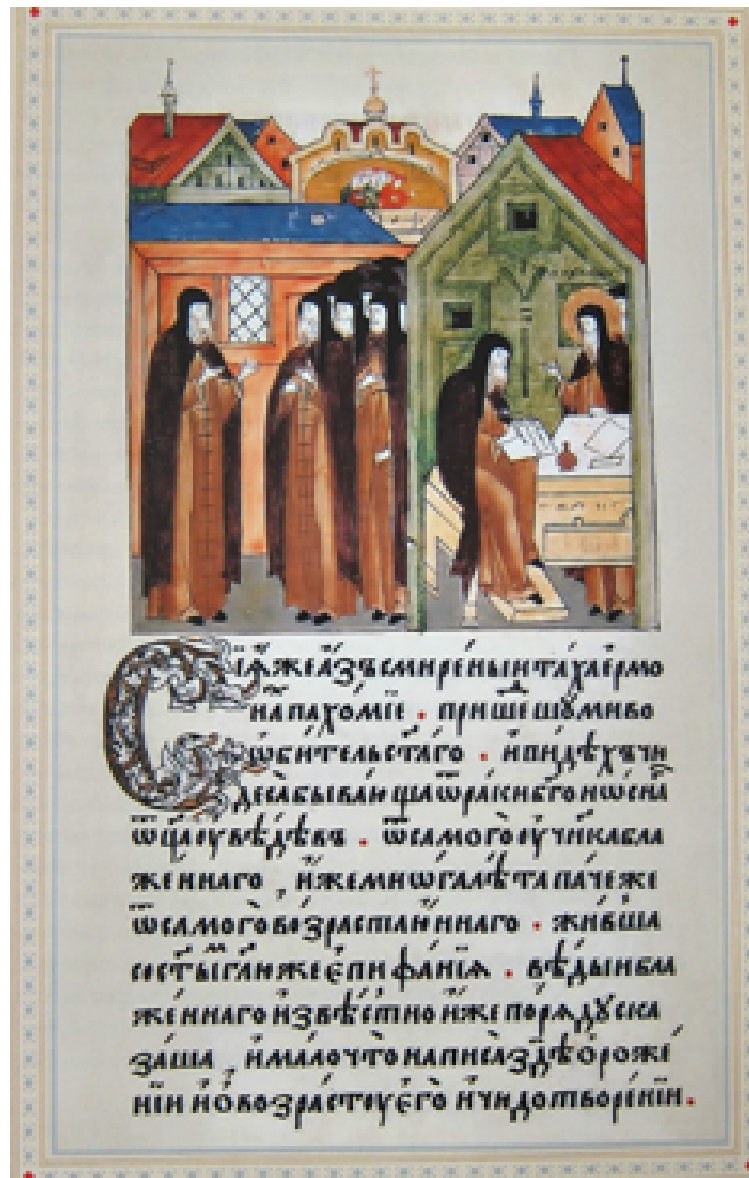 Сїѧ҆ же а҆́зъ смире́ныи таха̀ е҆рмо
на́ пахо́мїе . прише́шꙋ ми во
ѡ҆би́тель ст҃а́го . и҆ ви́дѣхъ чю
деса̀ быва́ющаѧ ѿ ра́кы бг҃оно́снаго
ѿц҃а̀ ᲂу҆вѣ́дѣвъ . ѿ самого̀ ᲂу҆чн҃ка бла
же́ннаго , и҆́же мнѡ́га лѣ́та па́че же
ѿ самого̀ во́зраста ю҆́наго . жи́вша
со ст҃ы́мъ гл҃ю же є҆пифа́нїѧ . вѣ́дыи бла
же́ннаго и҆звѣ́стно и҆́же порѧ́дꙋ сска
за́ша , и҆ ма́ло что̀ написа̀ здѣ̀ ѡ҆ роже́
нїи и҆ о҆ во́зрастꙋ є҆го̀ и҆ чюдотворе́нїи.